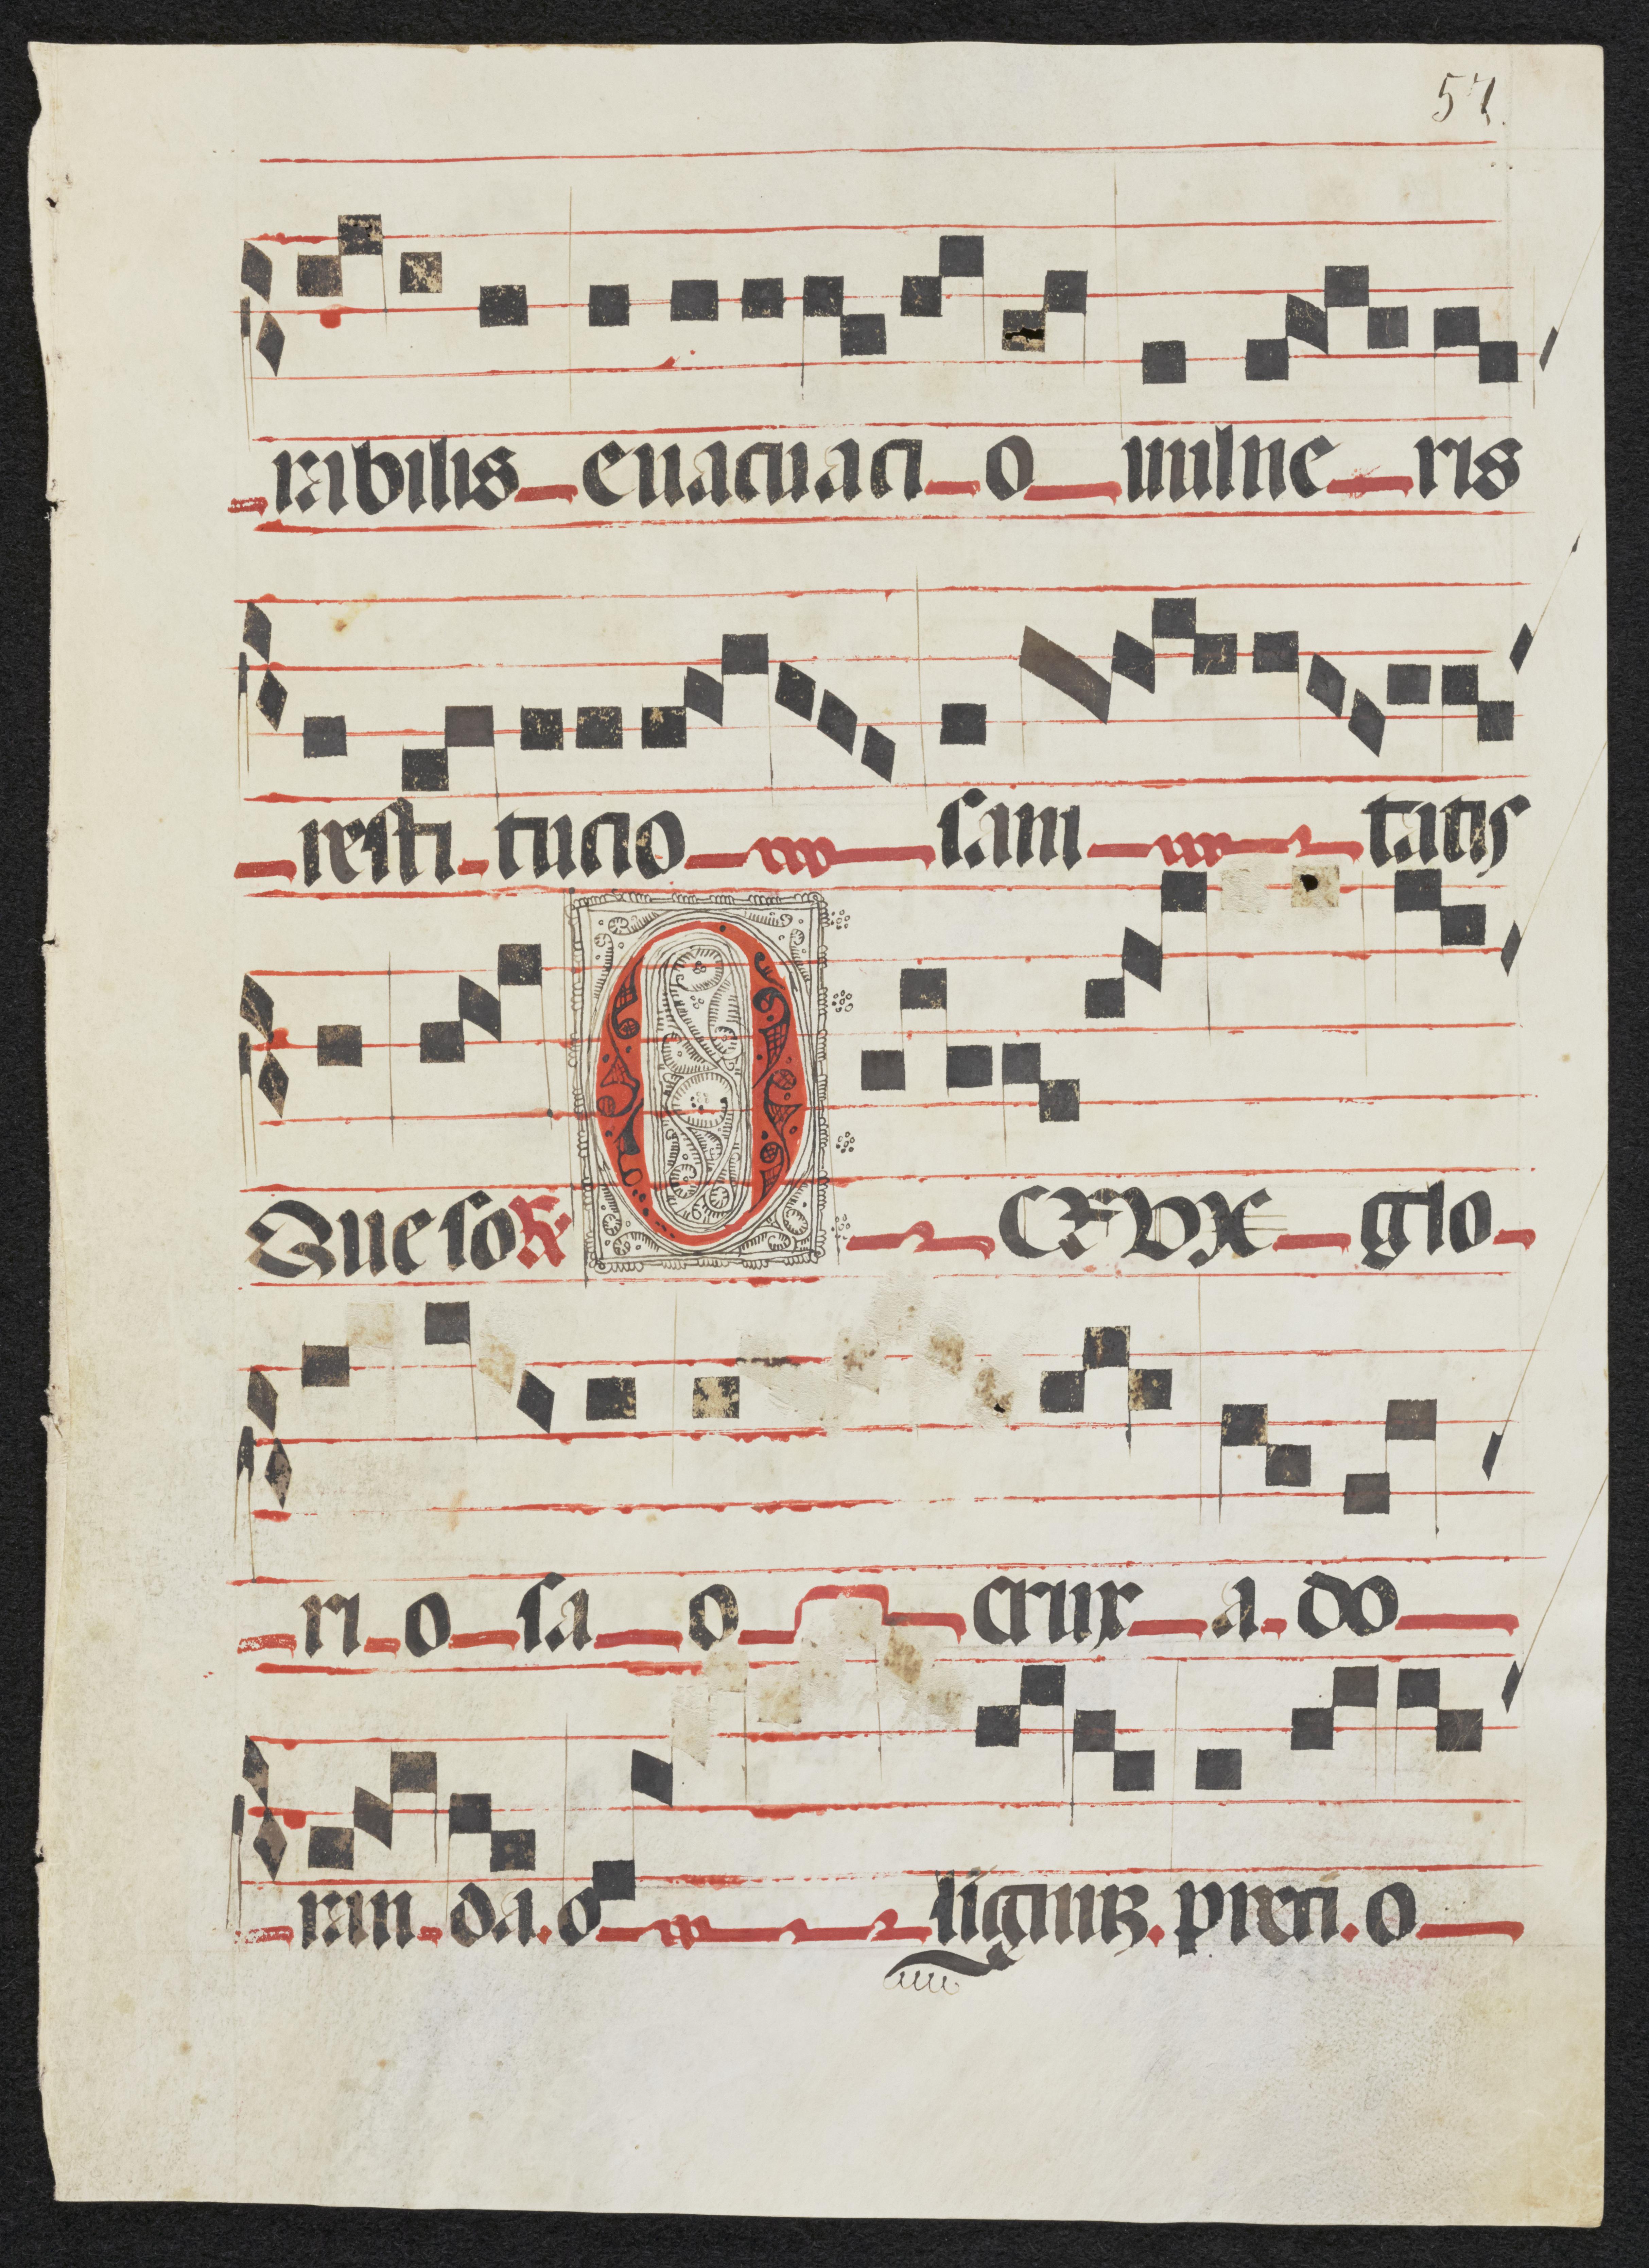 57.
ribilis evacuaci o vulne ris
resti tucio sani tatis
Que so ℟ O CRVX glo
ri o sa o crux a do
ran da o lignuꝫ preci o